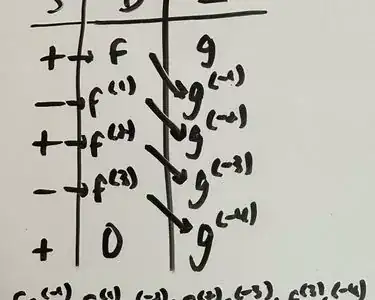 S D I
+ → f g
− → f⁽¹⁾ g⁽⁻¹⁾
+ → f⁽²⁾ g⁽⁻²⁾
− → f⁽³⁾ g⁽⁻³⁾
+ 0 g⁽⁻⁴⁾